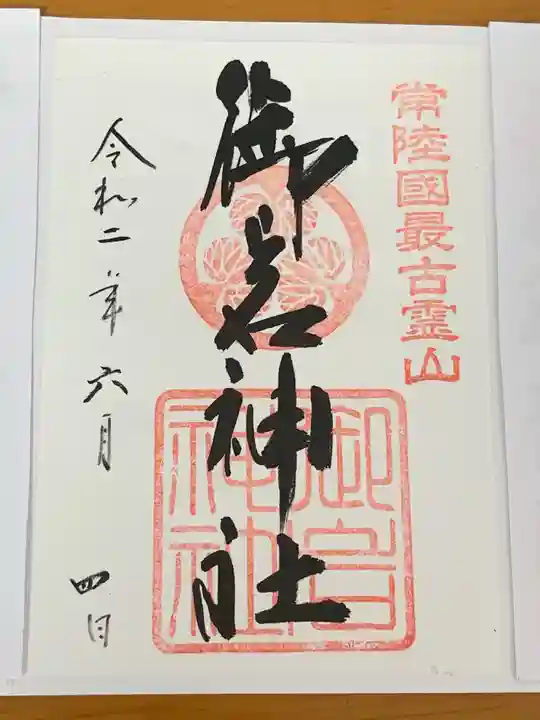 常陸國最古霊山
御岩神社
御岩神社
令和二年六月四日